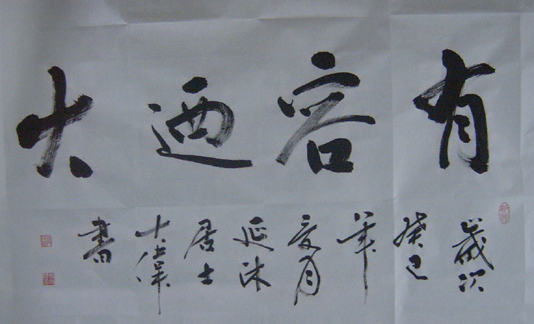 有容迺大
歲次癸巳年夏月延沐居士偉書